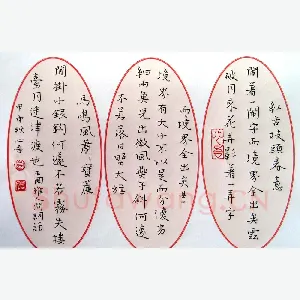 紅杏枝頭春意
鬧著一鬧字而境界全出矣雲
破月來花弄影著一弄字
而境界全出矣
境界有大小不以是而分優劣
細雨魚兒出微風燕子斜何遽
不若落日照大旗
馬鳴風蕭蕭寶簾
閒掛小銀鉤何遽不若霧失樓
臺月迷津渡也
甲申秋